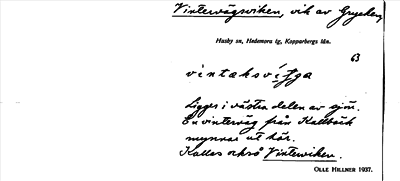 Vintervägsviken, vik av Grycken,
Husby sn, Hedemora tg, Kopparbergs län.
63
Ligger i västra delen av sjön.
En vinterväg från Kallbäck
mynnar ut här.
Kallas också Vinterviken.
OLLE HILLNER 1937.